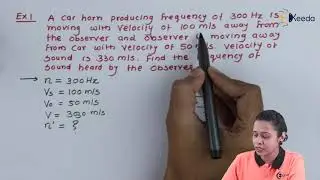 Ekeeda
Ex 1 A car horn producing frequency of 300 Hz is
moving with velocity of 100 m/s away from
the observer and observer is moving away
from car with velocity of 50 m/s. Velocity of
sound is 330 m/s. Find the frequency of
sound heard by the observer
→ n = 300 Hz
Vs = 100 m/s
Vo = 50 m/s
V = 330 m/s
n' = ?